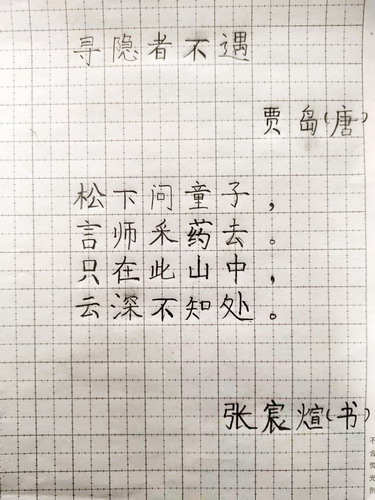 寻隐者不遇
贾岛(唐)
松下问童子，
言师采药去。
只在此山中，
云深不知处。
张宸煊(书)